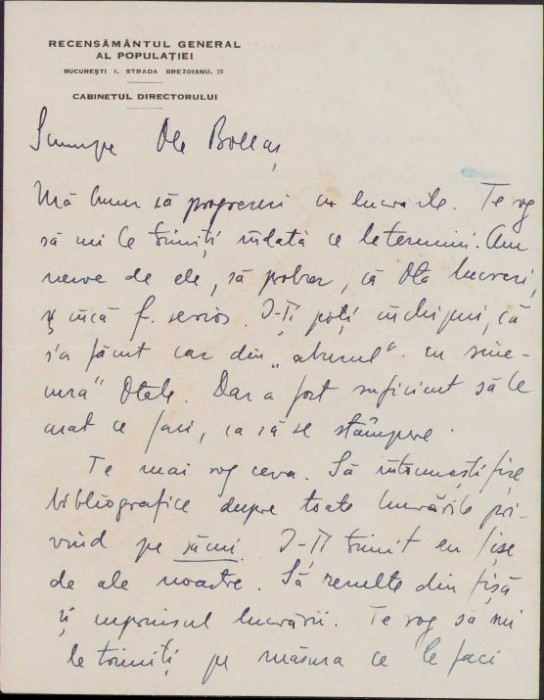 RECENSĂMÂNTUL GENERAL
AL POPULAȚIEI
BUCUREȘTI I, STRADA BREZOIANU, 21
CABINETUL DIRECTORULUI
Scumpe
să progresezi cu lucrările. Te rog
să mi le trimiți îndată ce le termini. Am
nevoe de ele, să probez, că D-ta lucrezi,
și încă f. serios. Iți poți închipui, că
s'a făcut caz din „abuzul" cu sine-
cura" D-tale. Dar a fost suficient să le
arăt ce faci, ca să se stâmpere.
Te mai rog ceva. Să întocmești fișe
bibliografice despre toate lucrările pri-
vind pe sămi. Iți trimit eu fișe
de ale noastre. Să rezulte din fișă
și cuprinsul lucrării. Te rog să mi
le trimiți pe măsura ce le faci